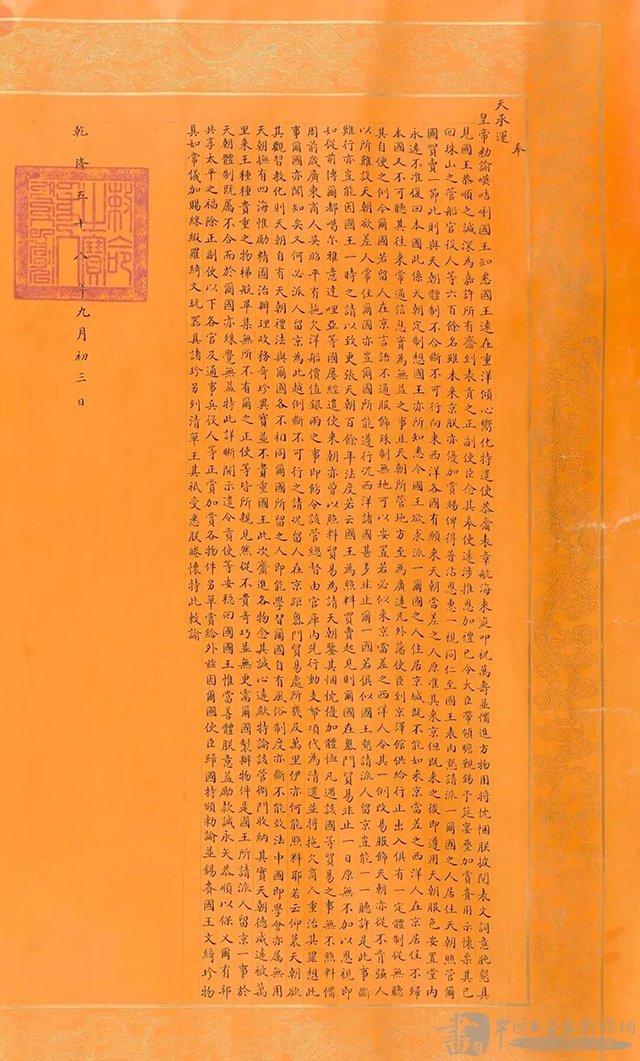 奉
天承運
皇帝勅諭嘆咭唎國王知悉國王遠在重洋傾心嚮化特遣使恭齎表章航海來庭叩祝萬壽並備進方物用將忱悃朕披閱表文詞意肫懇具
見國王恭順之誠深為嘉許所有齎到表貢之正副使臣念其奉使遠涉推恩加禮已令大臣帶領瞻覲錫予筵宴疊加賞賚用示懷柔其已
回珠山之管船官役人等六百餘名雖未來京朕亦優加賞賜俾得普沾恩惠一視同仁至國王表內懇請派一爾國之人居住天朝照管爾
國買賣一節此則與天朝體制不合斷不可行向來西洋各國有願來天朝當差之人原准其來京但既來之後即遵用天朝服色安置堂內
永遠不准復回本國此係天朝定制想國王亦所知悉今國王欲求派一爾國之人住居京城既不能如來京當差之西洋人在京居住不歸
本國又不可聽其往來常通信息實為無益之事且天朝所管地方至為廣遠凡外藩使臣到京譯館供給行止出入俱有一定體制從無聽
其自便之例今爾國若留人在京言語不通服飾殊制無地可以安置若必似來京當差之西洋人令其一例改易服飾天朝亦從不肯強人
以所難設天朝欲差人常住爾國亦豈爾國所能遵行況西洋諸國甚多非止爾一國若俱似國王懇請派人留京豈能一一聽許是此事斷
難行亦豈能因國王一時之請以致更張天朝百餘年法度若云國王為照料買賣起見則爾國在嶴門貿易非止一日原無不加以恩視即
如從前博爾都噶爾雅意達哩亞等國屢經遣使來朝亦曾以照料貿易為請天朝鑒其悃忱優加體恤凡遇該國等貿易之事無不照料備
周前歲廣東商人吳昭平有拖欠洋船價值銀兩之事即飭令該管總督由官庫內先行動支帑項代為清還並將拖欠商人重治其罪想此
事爾國亦聞知矣又何必派人留京為此越例斷不可行之請況留人在京距嶴門貿易處所幾及萬里伊亦何能照料耶若云仰慕天朝欲
其觀習教化則天朝自有天朝禮法與爾國各不相同爾國所留之人即能學習爾國自有風俗制度亦斷不能效法中國即學會亦屬無用
天朝撫有四海惟勵精圖治辦理政務奇珍異寶並不貴重國王此次齎進各物念其誠心遠獻特諭該管衙門收納其實天朝德威遠被萬
里來王種種貴重之物梯航畢集無所不有爾之正使等皆所親見然從不貴奇巧並無更需爾國製辦物件是國王所請派人留京一事於
天朝體制既屬不合而於爾國亦殊覺無益特此詳晰開示遣令貢使等安穩回國國王惟當善體朕意益勵款誠永矢恭順以保乂爾有邦
共享太平之福除正副使以下各官及通事兵役人等正賞加賞各物件另單賞給外茲因爾國使臣歸國特頒勅諭並錫賚國王文綺珍物
具如常儀加賜綵緞羅綺文玩器具諸珍另列清單王其祗受悉朕睠懷特此敕諭
乾隆五十八年九月初三日
敕命之寶